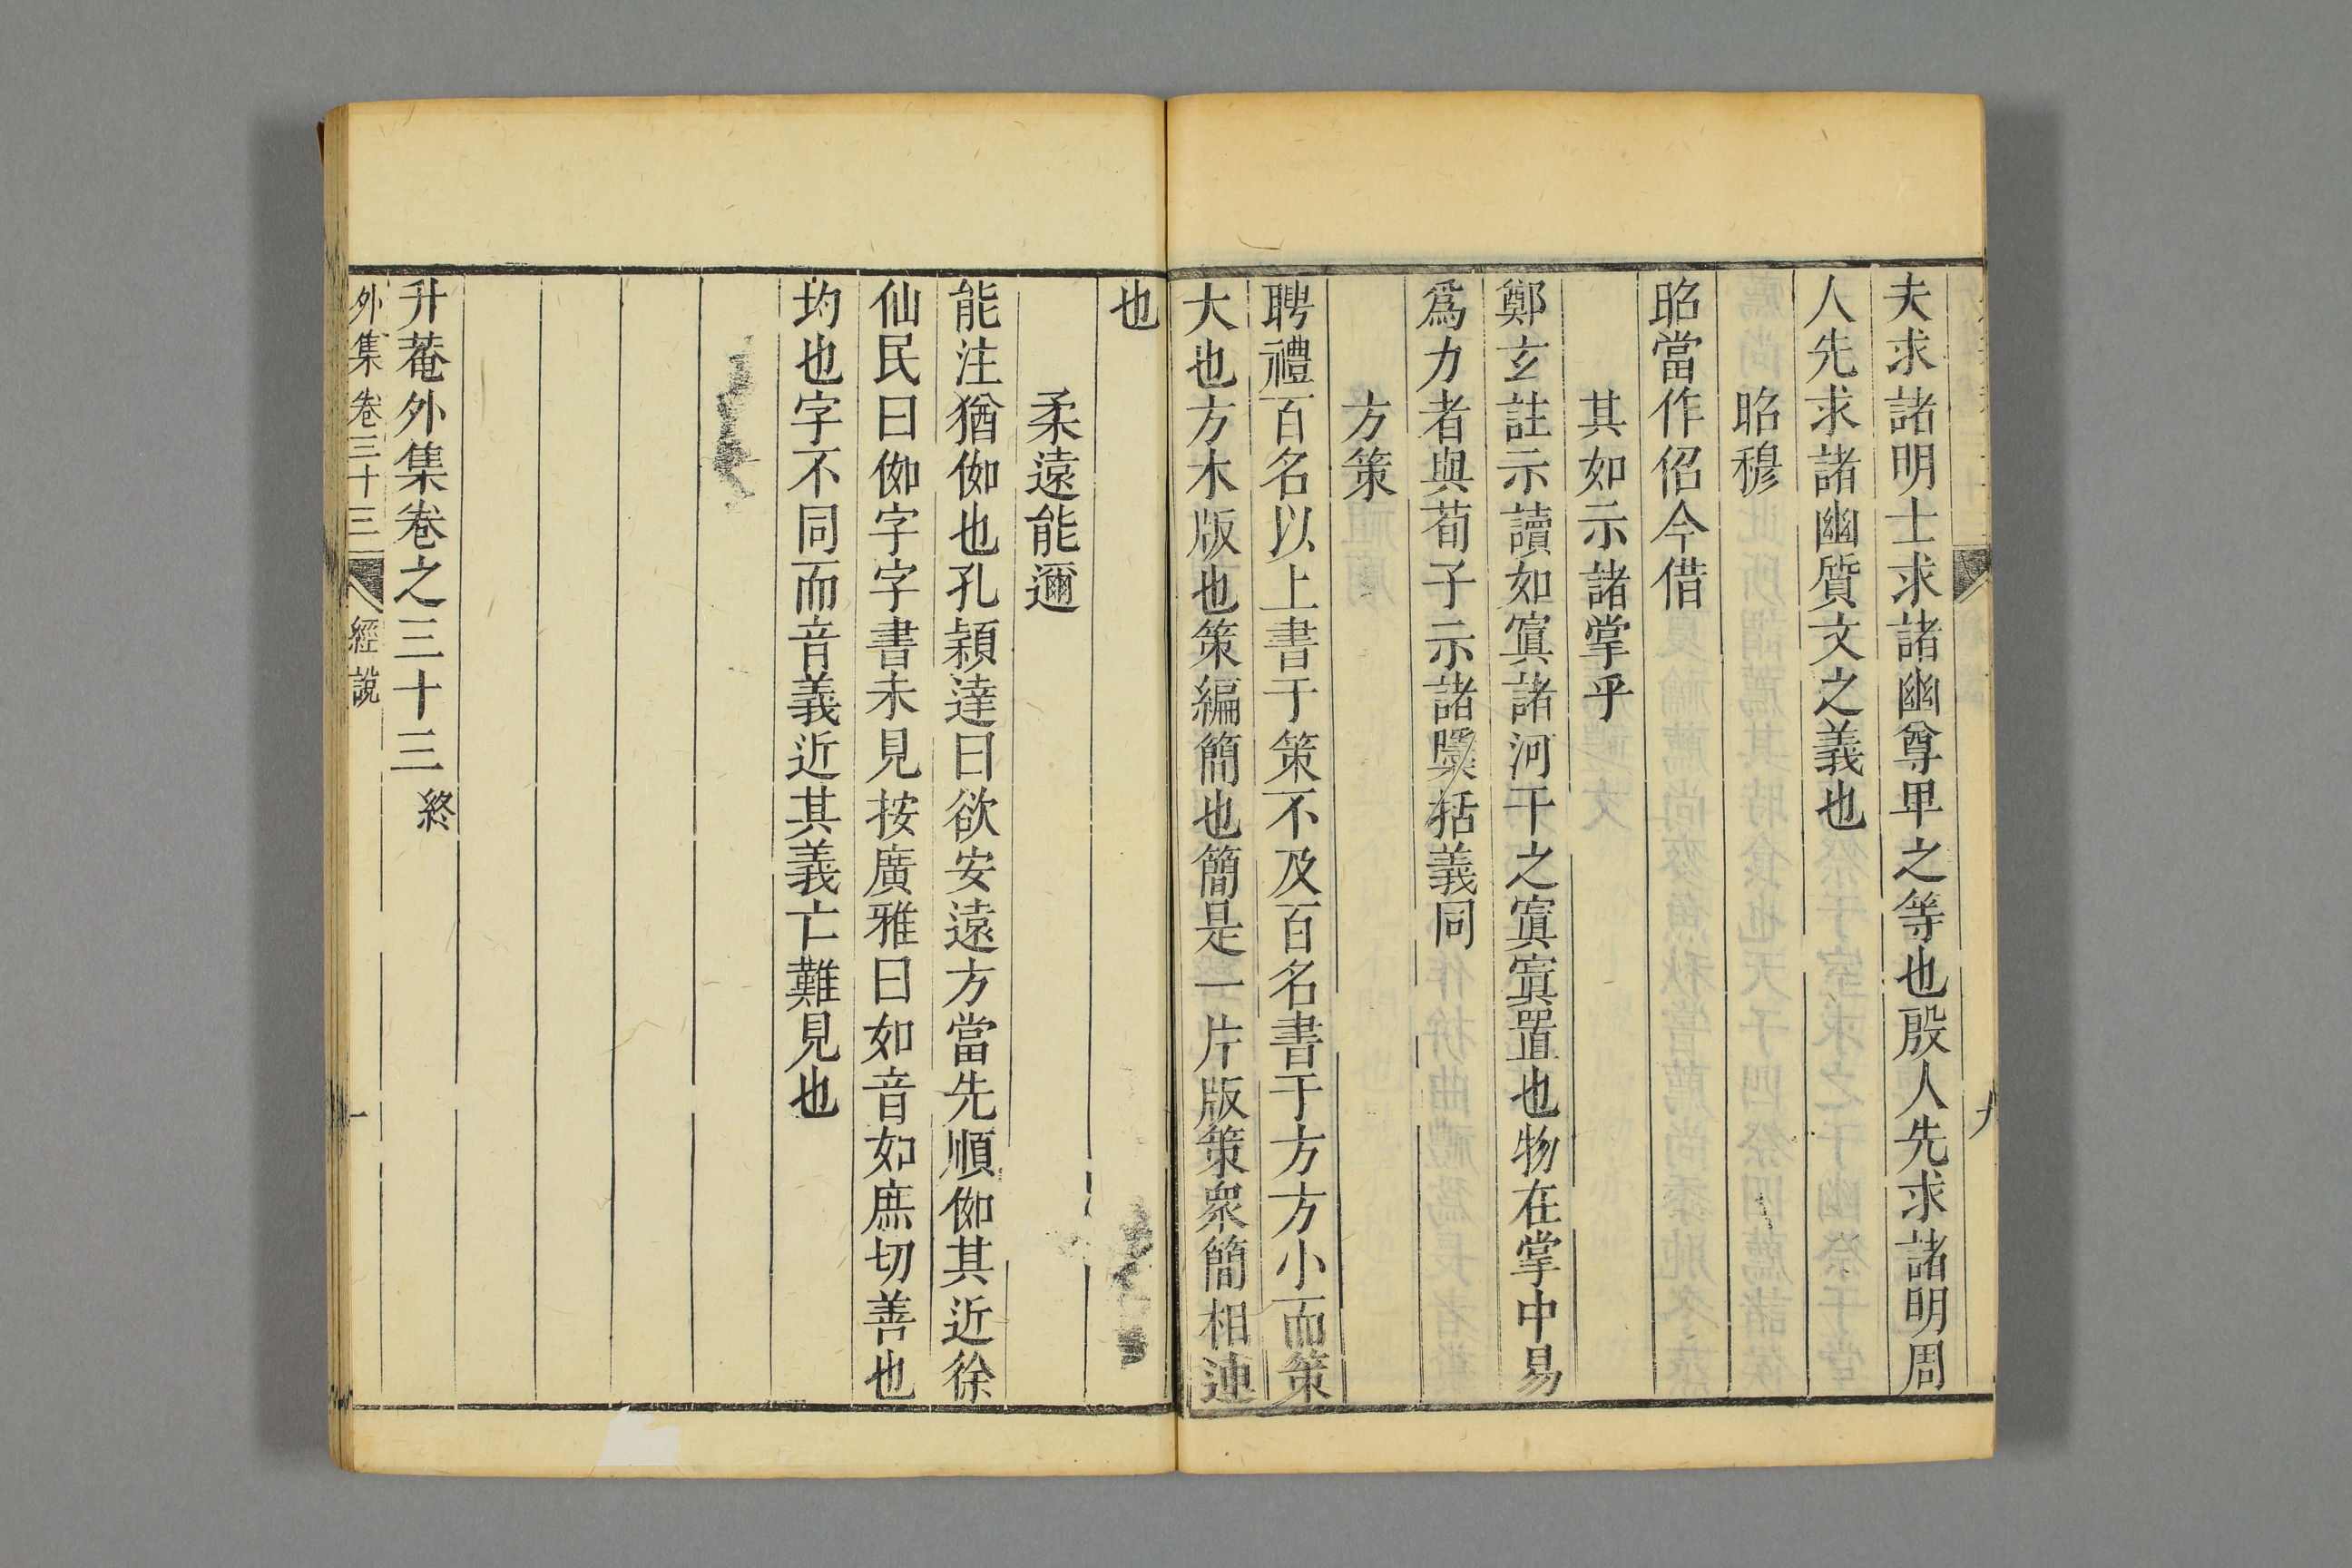 夫求諸明士求諸幽尊𤰞之等也殷人先求諸明周
人先求諸幽質文之義也
昭穆
昭當作佋今借
其如示諸掌乎
鄭玄註示讀如寘諸河干之寘寘置也物在掌中易
爲力者與荀子示諸檃括義同
方策
聘禮百名以上書于策不及百名書于方方小而策
大也方木版也策編簡也簡是一片版策衆簡相連
也
柔遠能邇
能注猶伽也孔穎達曰欲安遠方當先順伽其近徐
仙民曰伽字字書未見按廣雅曰如音如庶切善也
均也字不同而音義近其義亡難見也
升菴外集卷之三十三 終
外集 卷三十三 經說 一